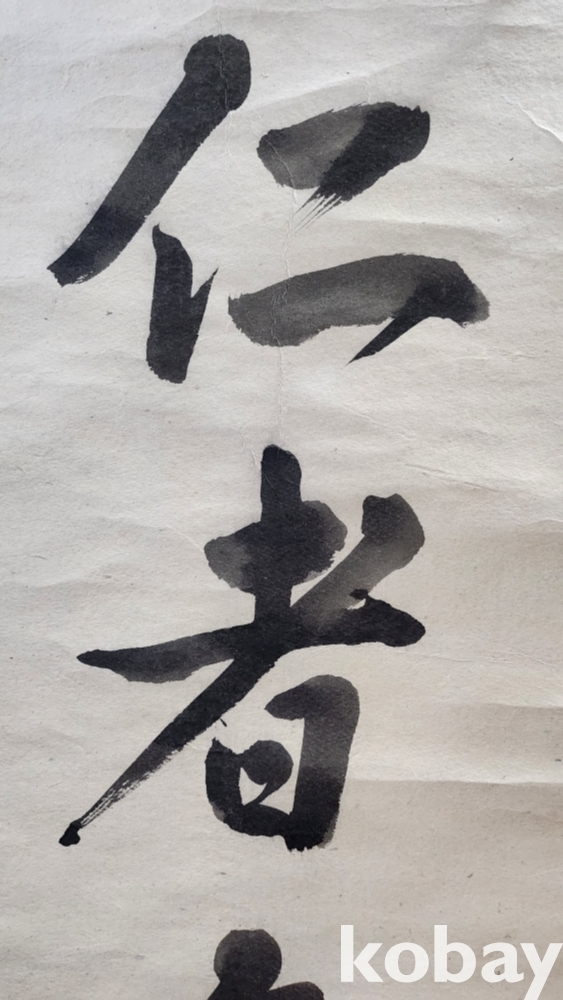 仁
者
kobay